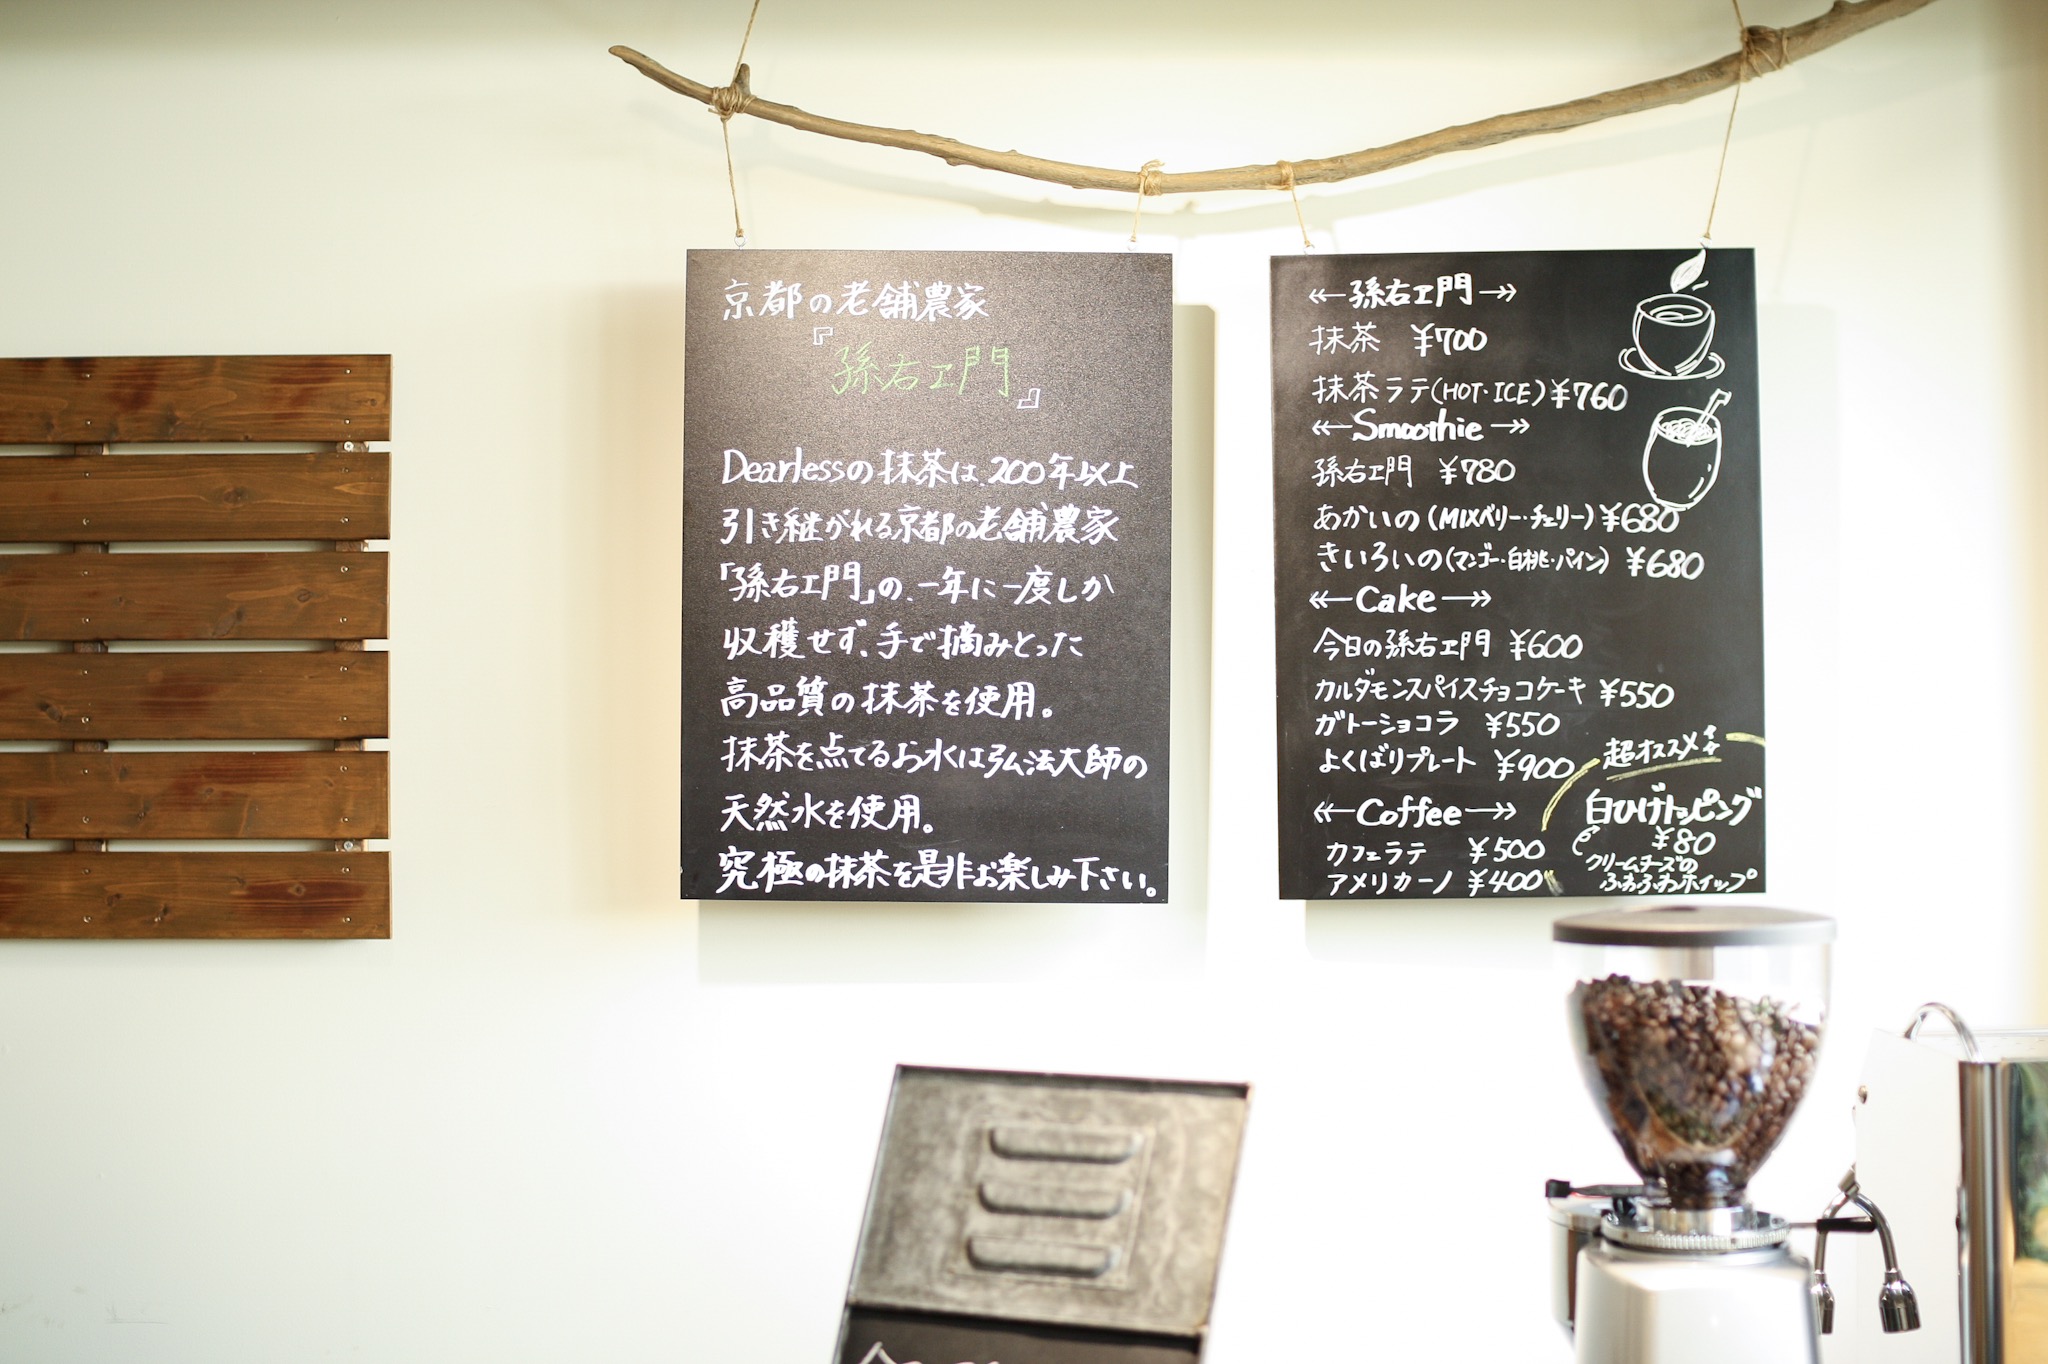 京都の老舗農家
『孫右ヱ門』
Dearlessの抹茶は、200年以上
引き継がれる京都の老舗農家
「孫右ヱ門」の、一年に一度しか
収穫せず、手で摘みとった
高品質の抹茶を使用。
抹茶を点てるお水は弘法大師の
天然水を使用。
究極の抹茶を是非お楽しみ下さい。
孫右ヱ門
抹茶 ¥700
抹茶ラテ(HOT・ICE)¥760
Smoothie
孫右ヱ門 ¥780
あかいの(MIXベリー・チェリー)¥680
きいろいの(マンゴー・白桃・パイン) ¥680
Cake
今日の孫右ヱ門 ¥600
カルダモンスパイスチョコケーキ ¥550
ガトーショコラ ¥550
よくばりプレート ¥900
Coffee
カフェラテ ¥500
アメリカーノ ¥400
超オススメ
白ひげトッピング
¥80
クリームチーズの
ふわふわホイップ